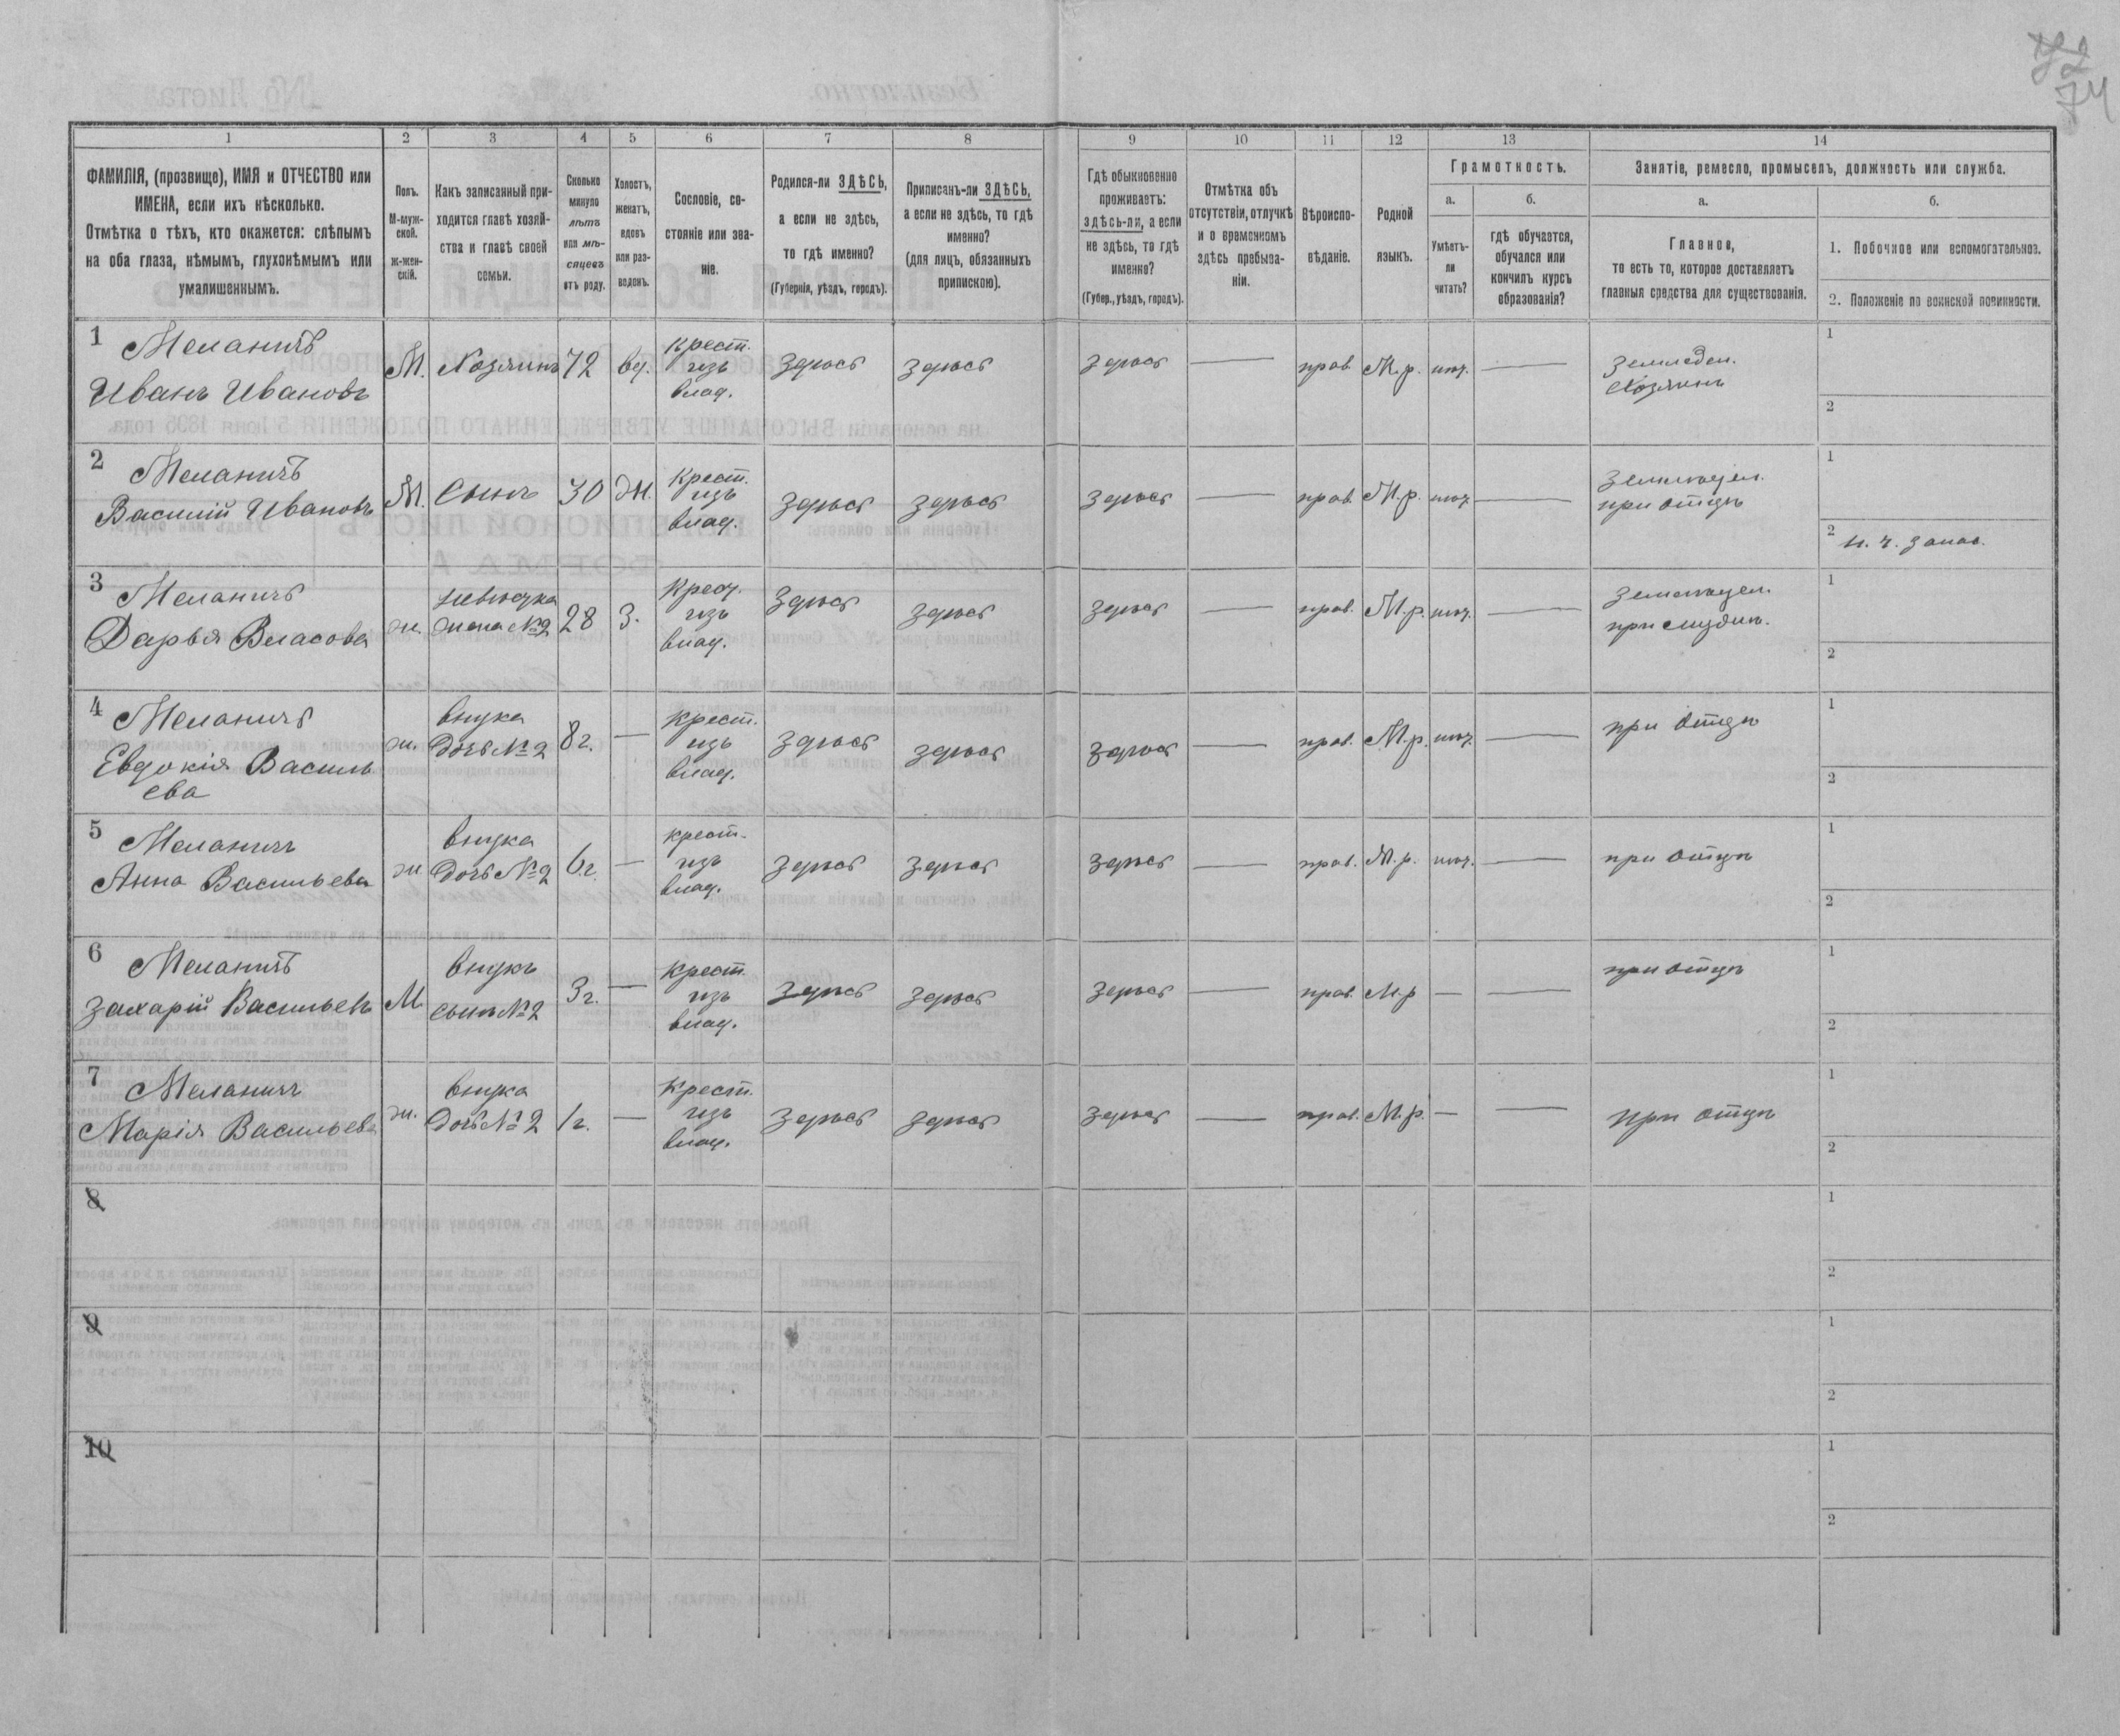 72
74
1 2 3 4 5 6 7 8 9 10 11 12 13 14
ФАМИЛІЯ, (прозвище), ИМЯ и ОТЧЕСТВО или
ИМЕНА, если ихъ нѣсколько.
Отмѣтка о тѣхъ, кто окажется: слѣпымъ
на оба глаза, нѣмымъ, глухонѣмымъ или
умалишеннымъ.
Полъ.
М-муж-
ской.
Ж-жен-
скій.
Какъ записанный при-
ходится главѣ хозяй-
ства и главѣ своей
семьи.
Сколько
минуло
лѣтъ
или мѣ-
сяцевъ
отъ роду.
Холостъ,
женатъ,
вдовъ
или раз-
веденъ.
Сословіе, со-
стояніе или зва-
ніе.
Родился-ли ЗДѢСЬ,
а если не здѣсь,
то гдѣ именно?
(Губернія, уѣздъ, городъ).
Приписанъ-ли ЗДѢСЬ,
а если не здѣсь, то гдѣ
именно?
(для лицъ, обязанныхъ
припискою).
Гдѣ обыкновенно
проживаетъ:
здѣсь-ли, а если
не здѣсь, то гдѣ
именно?
(Губер., уѣздъ, городъ).
Отмѣтка объ
отсутствіи, отлучкѣ
и о временномъ
здѣсь пребыва-
ніи.
Вѣроиспо-
вѣданіе.
Родной
языкъ.
Грамотность.
а.
Умѣетъ-
ли
читать?
б.
гдѣ обучается,
обучался или
кончилъ курсъ
образованія?
Занятіе, ремесло, промыселъ, должность или служба.
а.
Главное,
то есть то, которое доставляетъ
главныя средства для существованія.
б.
1. Побочное или вспомогательное.
2. Положеніе по воинской повинности.
1 Меланичъ
Иванъ Ивановъ
М. Хозяинъ 72 вд.
Крест.
изъ
влад.
Здѣсь Здѣсь Здѣсь — прав. М.р. нѣт. —
Земледел.
Хозяинъ
1
2
2 Меланичъ
Василій Ивановъ
М. Сынъ 30 Ж.
Крест.
изъ
влад.
Здѣсь Здѣсь Здѣсь — прав. М.р. нѣт. —
Земледел.
при отцѣ
1
2 н. ч. запас.
3 Меланичъ
Дарья Власова
ж.
невѣстка
жена №2
28 З.
Крест.
изъ
влад.
Здѣсь Здѣсь Здѣсь — прав. М.р. нѣт. —
Земледел.
при мужѣ.
1
2
4 Меланичъ
Евдокія Василь
ева
ж.
внука
Дочь №2
8 г. —
Крест.
изъ
влад.
Здѣсь Здѣсь Здѣсь — прав. М.р. нѣт. —
при отцѣ
1
2
5 Меланичъ
Анна Васильева
ж
внука
Дочь №2
6 г. —
крест.
изъ
влад.
Здѣсь Здѣсь Здѣсь — прав. М.р. нѣт. —
при отцѣ
1
2
6 Меланичъ
Захарій Васильевъ
М
внукъ
сынъ №2
3 г. —
Крест.
изъ
влад.
Здѣсь Здѣсь Здѣсь — прав. М.р — —
при отцѣ
1
2
7 Меланичъ
Марія Васильева
ж.
внука
Дочь №2
1 г. —
Крест.
изъ
влад.
Здѣсь Здѣсь Здѣсь — прав. М.р. — —
при отцѣ
1
2
8
1
2
9
1
2
10
1
2